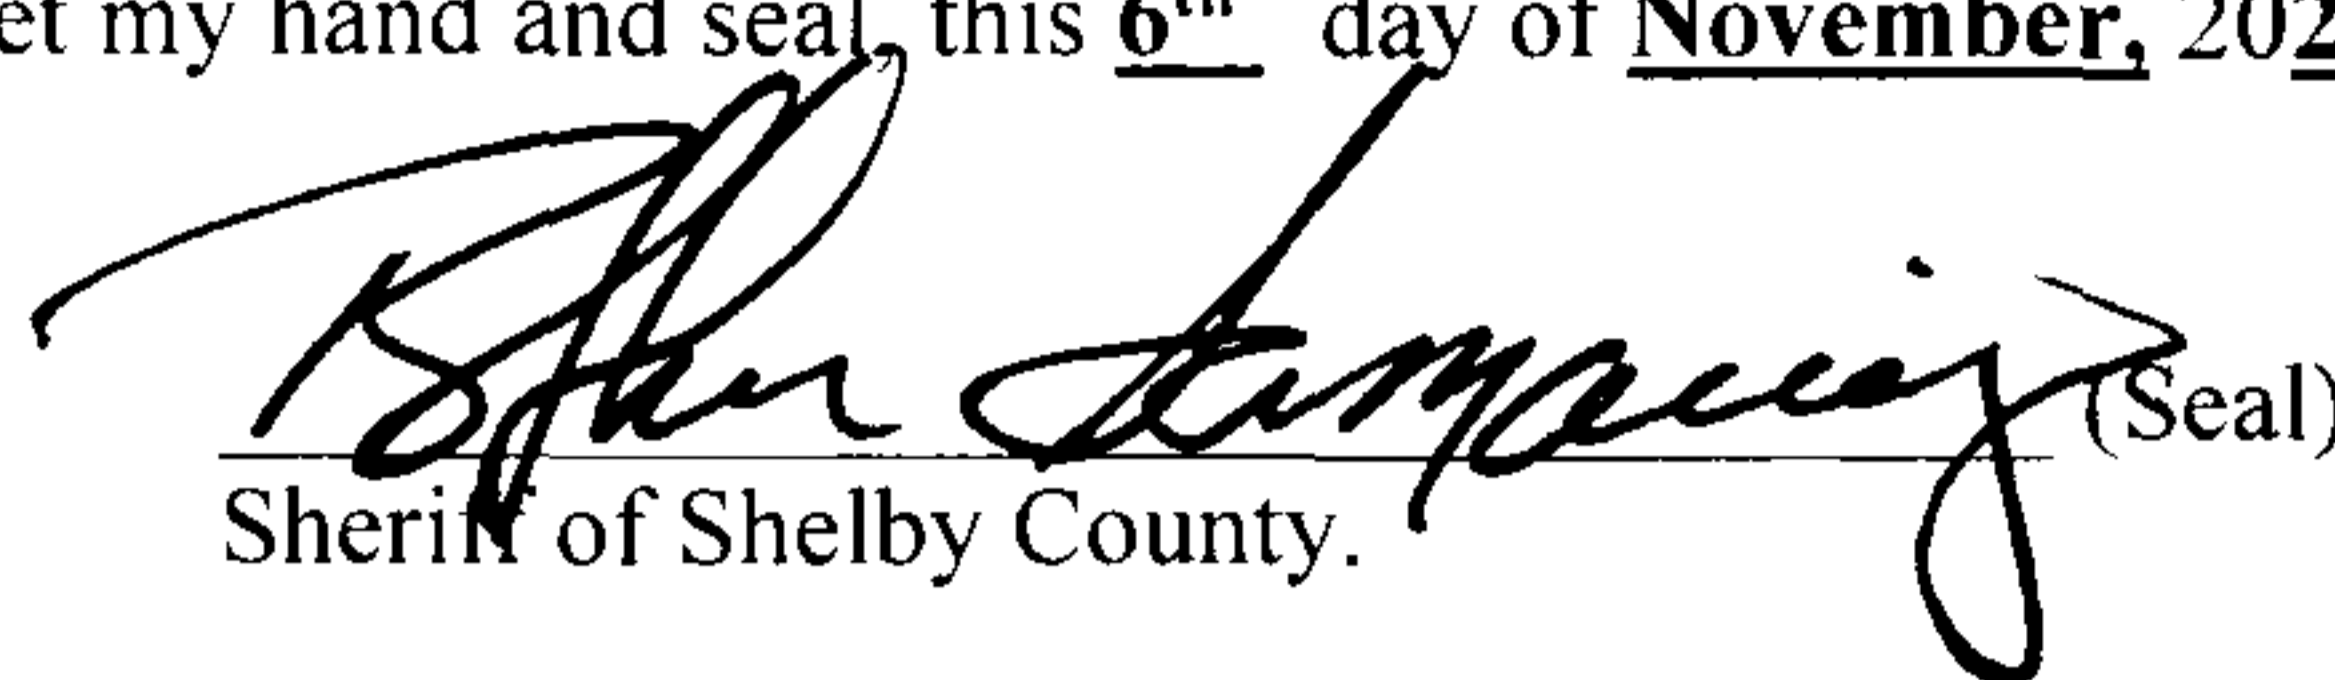 et my hand and seal, this 6th day of November, 202
(Seal)
Sheriff of Shelby County.